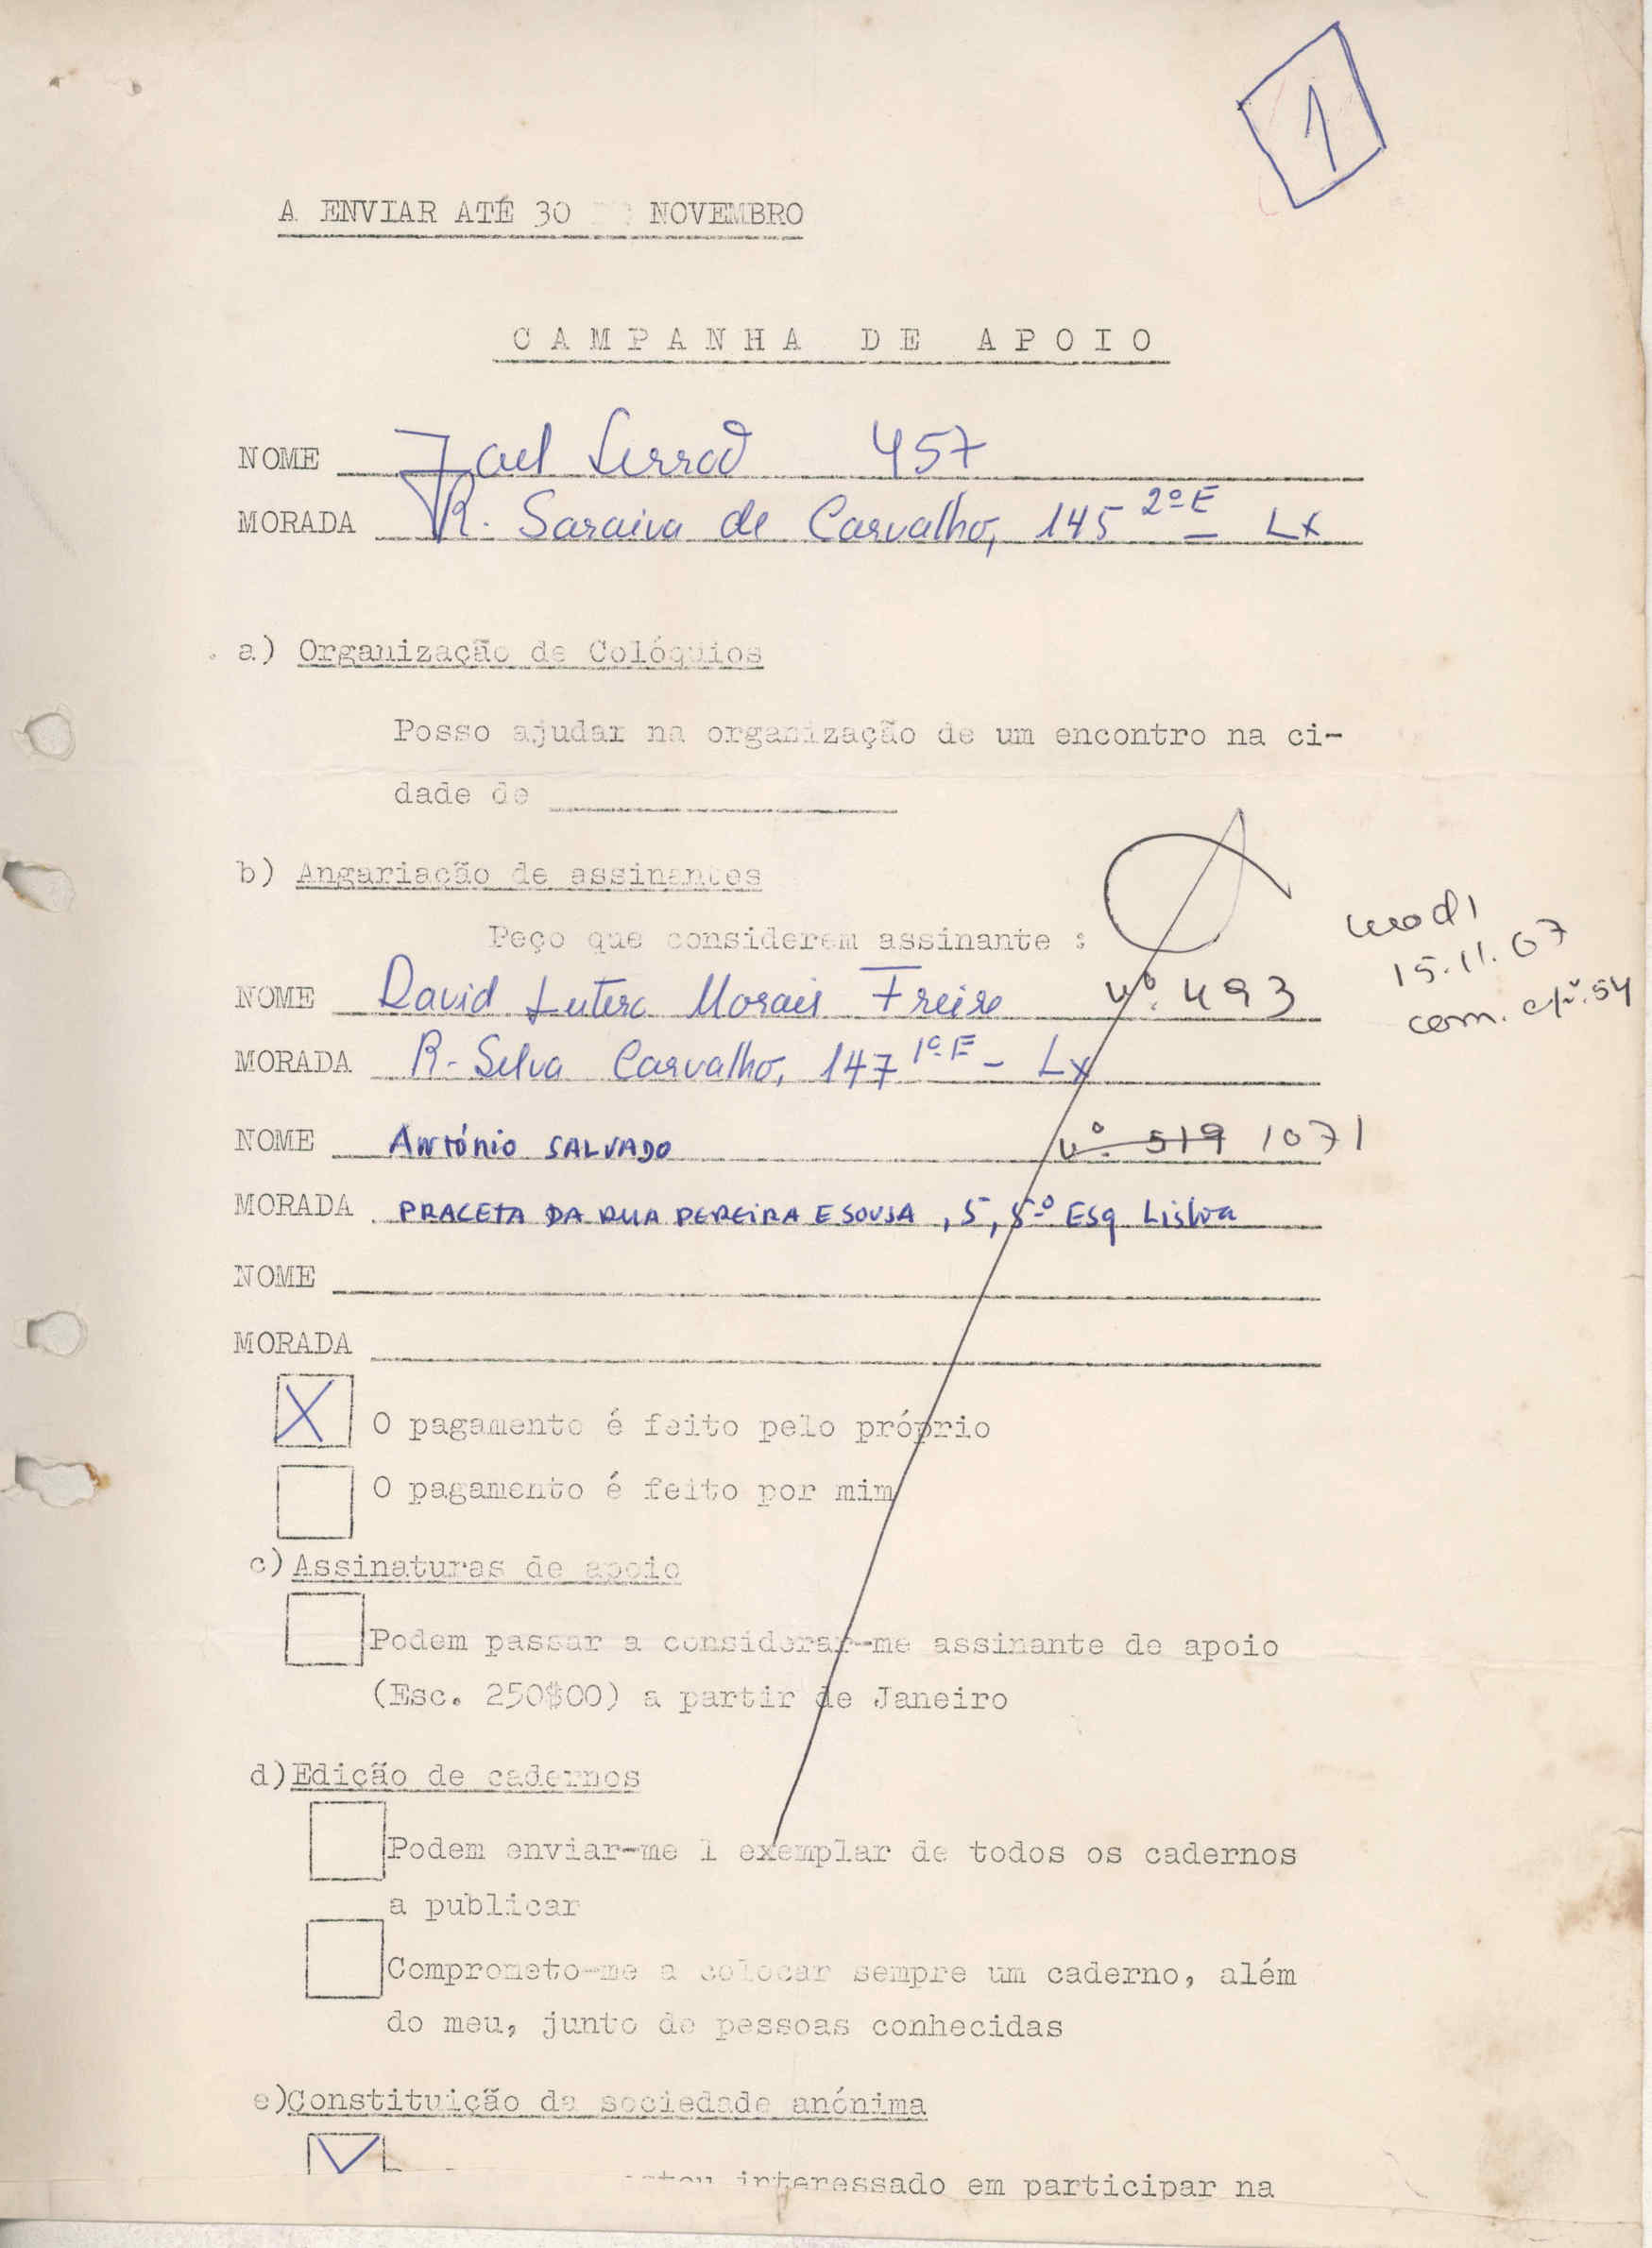 1
A ENVIAR ATÉ 30 DE NOVEMBRO
CAMPANHA DE APOIO
NOME Joel Serrão 457
MORADA R. Saraiva de Carvalho, 145 2º E Lx
a) Organização de Colóquios
Posso ajudar na organização de um encontro na ci-
dade de
b) Angariação de assinantes
Peço que considerem assinante :
15.11.67
NOME David Lutero Morais Freire nº. 493
com. 54
MORADA R. Selva Carvalho, 147 1º E - Lx
NOME António SALVADO nº 519 1071
MORADA PRACETA DA RUA PEREIRA E SOUSA, 5, 5º Esq Lisboa
NOME
MORADA
X O pagamento é feito pelo próprio
O pagamento é feito por mim
c) Assinaturas de apoio
Podem passar a considerar-me assinante de apoio
(Esc. 250$00) a partir de Janeiro
d) Edição de cadernos
Podem enviar-me 1 exemplar de todos os cadernos
a publicar
Comprometo-me a colocar sempre um caderno, além
do meu, junto de pessoas conhecidas
e) Constituição da sociedade anónima
estou interessado em participar na